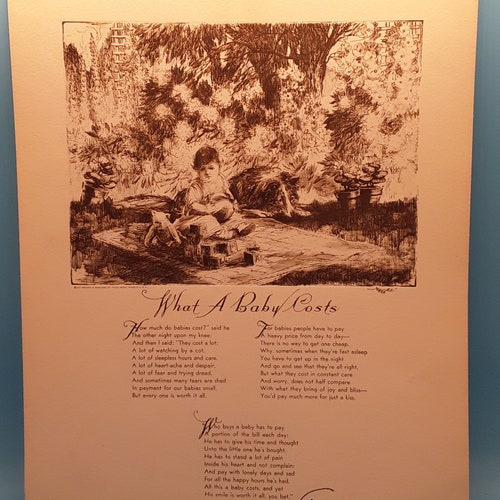 What A Baby Costs
"How much do babies cost?" said he
The other night upon my knee;
And then I said: "They cost a lot;
A lot of watching by a cot,
A lot of sleepless hours and care,
A lot of heart-ache and despair,
A lot of fear and trying dread,
And sometimes many tears are shed
In payment for our babies small,
But every one is worth it all.
For babies people have to pay
A heavy price from day to day—
There is no way to get one cheap.
Why, sometimes when they're fast asleep
You have to get up in the night
And go and see that they're all right.
But what they cost in constant care
And worry, does not half compare
With what they bring of joy and bliss—
You'd pay much more for just a kiss.
Who buys a baby has to pay
A portion of the bill each day;
He has to give his time and thought
Unto the little one he's bought.
He has to stand a lot of pain
Inside his heart and not complain;
And pay with lonely days and sad
For all the happy hours he's had.
All this a baby costs, and yet
His smile is worth it all, you bet."